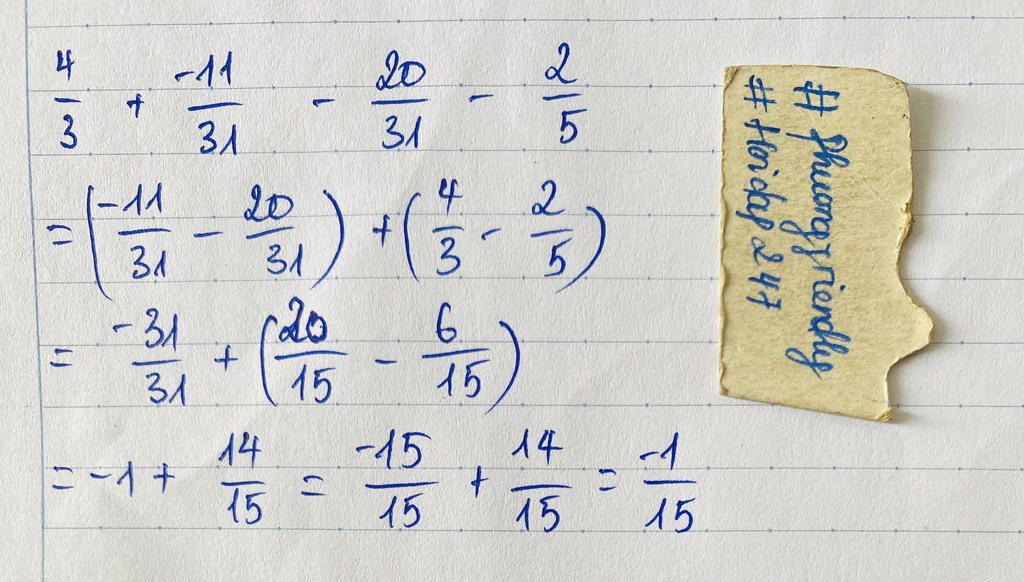 4/3 + -11/31 - 20/31 - 2/5
= (-11/31 - 20/31) + (4/3 - 2/5)
= -31/31 + (20/15 - 6/15)
= -1 + 14/15 = -15/15 + 14/15 = -1/15
# phuongfriendly
# Hoidap 247